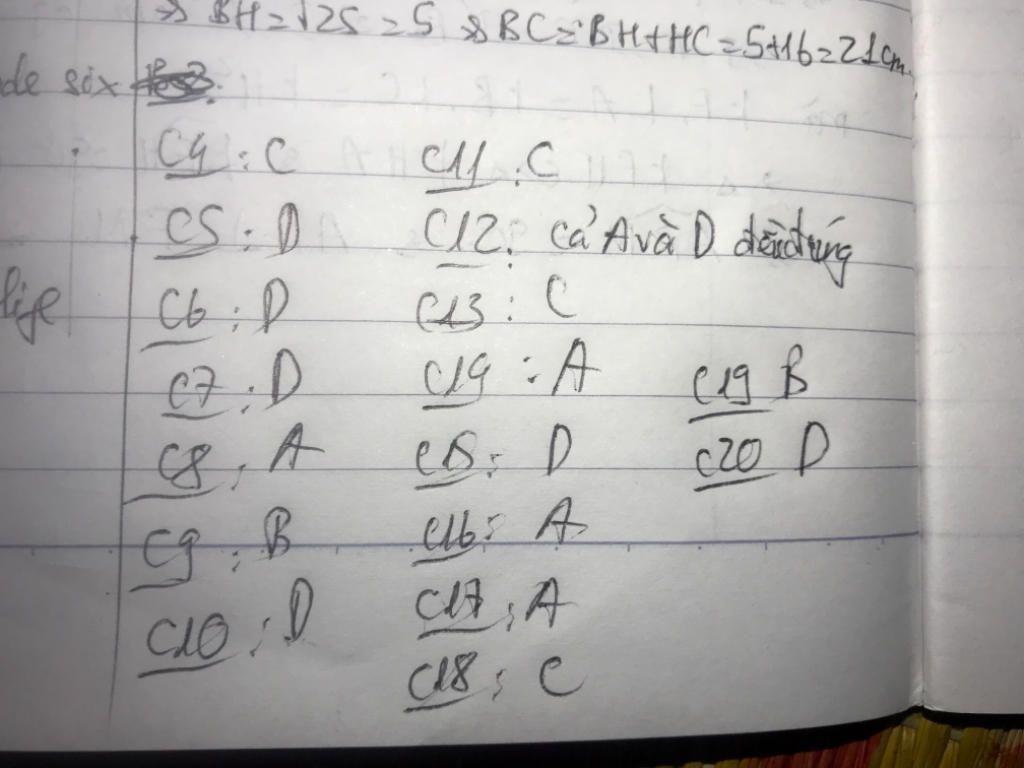 => BH = √25 = 5 => BC = BH + HC = 5 + 16 = 21cm.
de six
C4 : C
C5 : D
C6 : D
life
C7 : D
C8 : A
C9 : B
C10 : D
C11 : C
C12 : cả A và D đều đúng
C13 : C
C14 : A
C15 : D
C16 : A
C17 : A
C18 : C
C19 B
C20 D